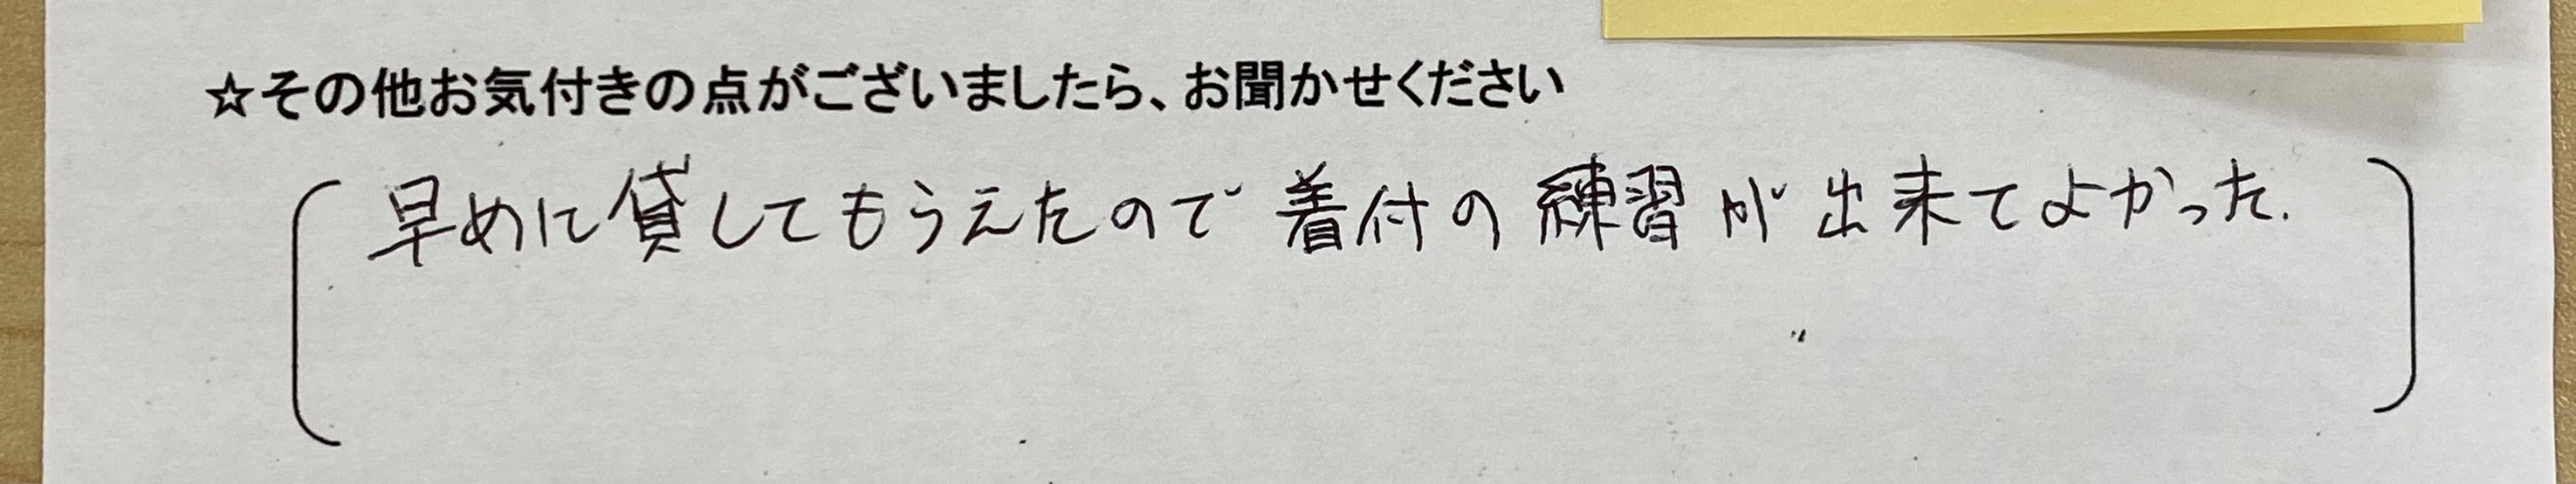 ☆その他お気付きの点がございましたら、お聞かせください
早めに貸してもらえたので着付の練習が出来てよかった.